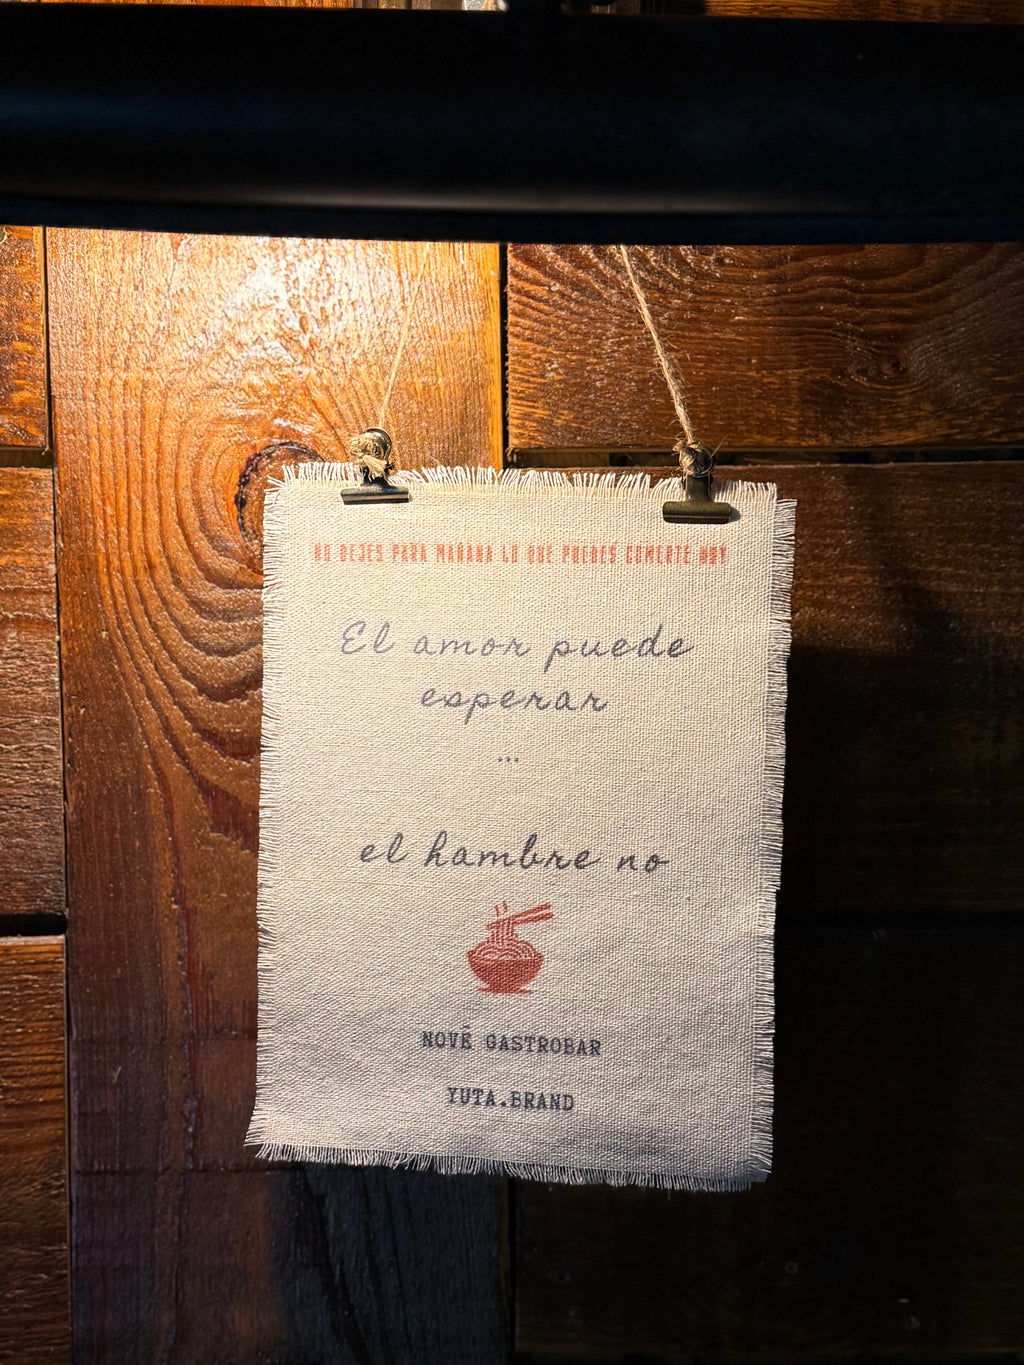 NO DEJES PARA MAÑANA LO QUE PUEDES COMERTE HOY
El amor puede
esperar
...
el hambre no
NOVÉ GASTROBAR
YUTA.BRAND